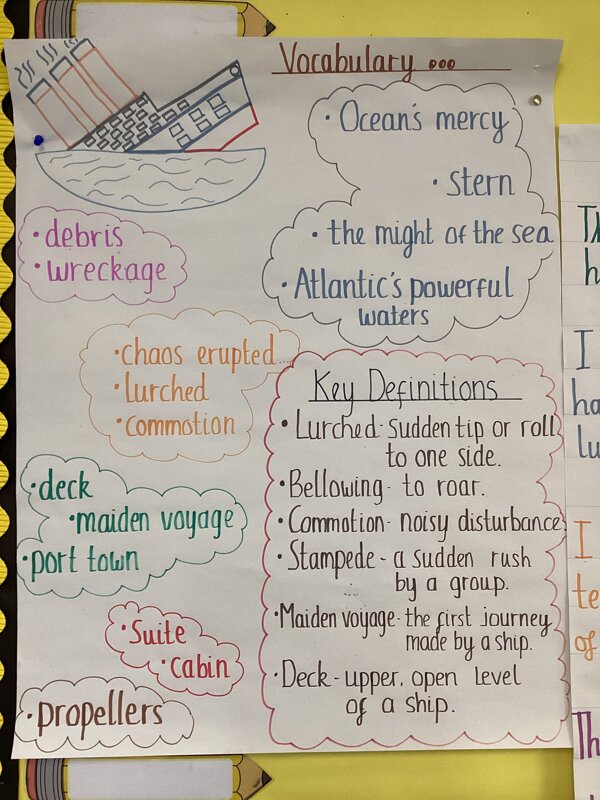 Vocabulary ...
• Ocean's mercy
• stern
• the might of the sea
• Atlantic's powerful
waters
• debris
• wreckage
• chaos erupted...
• lurched
• commotion
• deck
• maiden voyage
• port town
• Suite
• cabin
• propellers
Key Definitions
• Lurched- Sudden tip or roll
to one side.
• Bellowing- to roar.
• Commotion- noisy disturbance
• Stampede - a sudden rush
by a group.
• Maiden voyage- the first journey
made by a ship.
• Deck - upper, open level
of a ship.
I
I